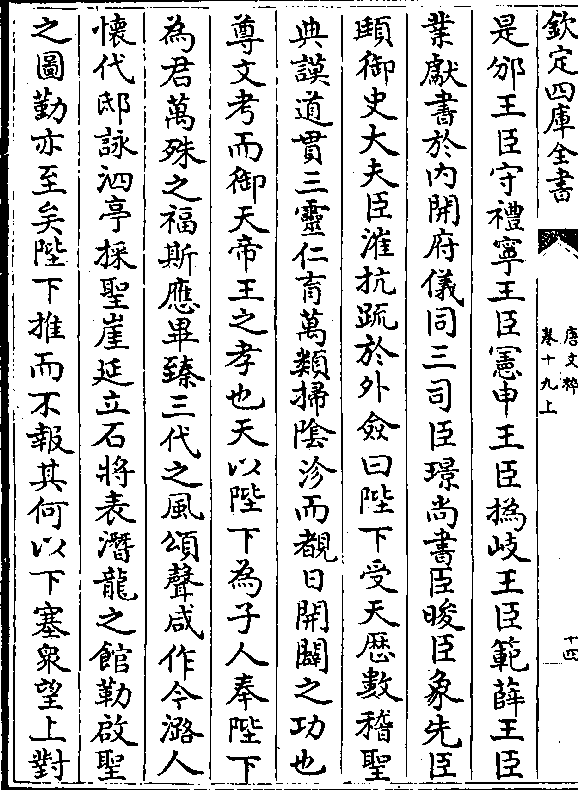 欽定四庫全書
唐文粹
卷十九上
十四
是邠王臣守禮寧王臣憲申王臣撝岐王臣範薛王臣
業獻書於内開府儀同三司臣璟尚書臣晙臣象先臣
頲御史大夫臣漼抗疏於外僉曰陛下受天歴數稽聖
典謨道貫三靈仁育萬類掃隂沴而覩日開闢之功也
尊文考而御天帝王之孝也天以陛下為子人奉陛下
為君萬殊之福斯應畢臻三代之風頌聲咸作今潞人
懷代邸詠泗亭採聖崖延立石將表潛龍之館勒啟聖
之圖勤亦至矣陛下推而不報其何以下塞衆望上對